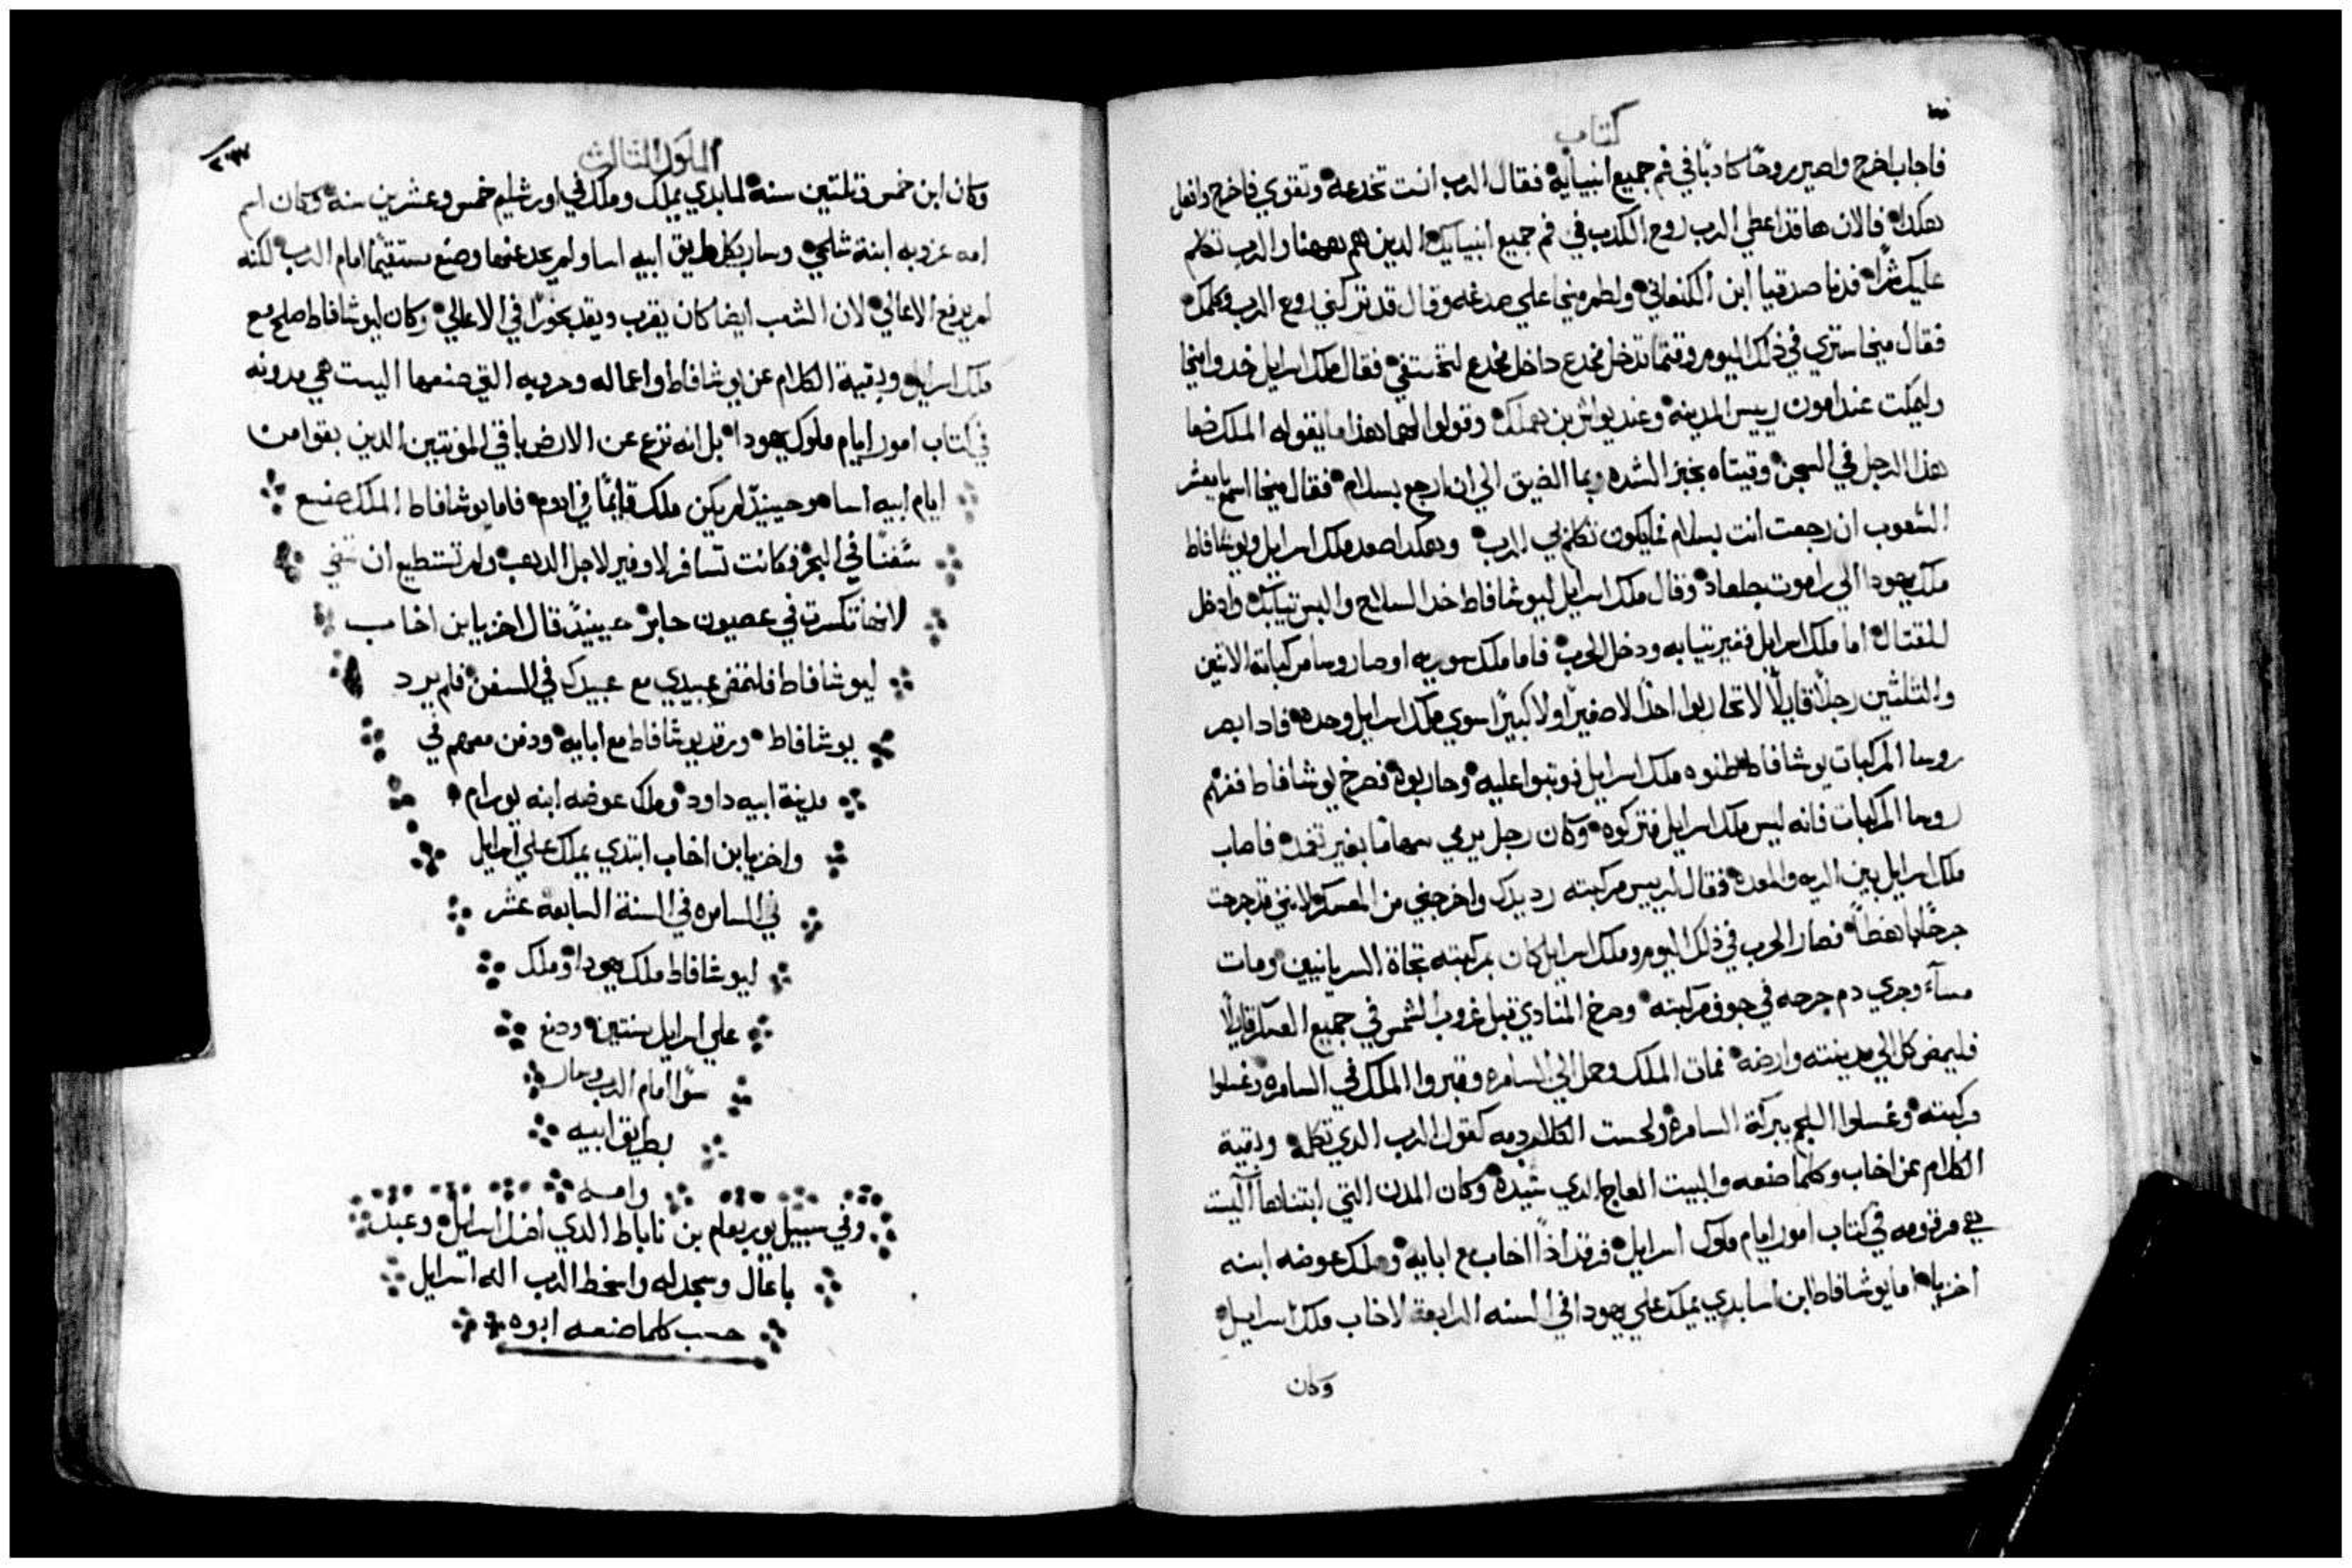 كتاب
فاجاب اخرج واصير روحًا كادبًا في فم جميع انبيايه فقال الرب انت تخدعه وتقوي فاخرج وافعل
هكدا فالان هاقد اعطي الرب روح الكدب في فم جميع انبيايك الدين هم هاهنا والرب تكلم
عليك شرًا فدنا صدقيا ابن الكنعاني ولطم ميخا علي صدغه وقال قد تركني روح الرب وكلمك
فقال ميخا ستري في ذلك اليوم وقتما تدخل مخدع داخل مخدع لتختفي فقال ملك اسرايل خدوا ميخا
وليمكت عند امون رييس المدينه وعند يواش بن هملك وقولوا لهما هذا ما يقوله الملك ضعا
هذا الرجل في السجن وقيتاه بخبز الشده وبما الضيق الي ان ارجع بسلام فقال ميخا اسمع يا معشر
الشعوب ان رجعت انت بسلام فما يكون تكلم بي الرب وهكدا صعد ملك اسرايل ويوشافاط
ملك يهودا الي راموت جلعاد وقال ملك اسرايل ليوشافاط خد السلاح والبس تيابك وادخل
للقتال اما ملك اسرايل فغير تيابه ودخل الحرب فاما ملك سوريه اوصا روسا مركباته الاتنين
والتلتين رجلًا قايلًا لا تحاربوا احدًا لا صغيرًا ولا كبيرًا سوي ملك اسرايل وحده فادا ابصر
روسا المركبات يوشافاط ظنوه ملك اسرايل فوتبوا عليه وحاربوه فصرخ يوشافاط ففهم
روسا المركبات فانه ليس ملك اسرايل فتركوه وكان رجل يرمي سهامًا بغير تعمد فاصاب
ملك اسرايل بين الريه والمعده فقال لرييس مركبته رد يدك واخرجني من العسكر لانني قد جرحت
جرحًا باهظًا فصار الحرب في ذلك اليوم وملك اسرايل كان بمركبته تجاة السريانيين ومات
مسآء وجري دم جرحه في جوف مركبته وصرخ المنادي قبل غروب الشمس في جميع العسكر قايلًا
فليمض كل الي مدينته وارضه فمات الملك وحمل الي السامره وقبروا الملك في السامره وغسلوا
مركبته وغسلوا اللجم ببركة السامره ولحست الكلاب دمه كقول الرب الدي تكلمه وبقية
الكلام عن اخاب وكلما صنعه والبيت العاج الدي شيده وكان المدن التي ابتناها اليست
هي مرقومه في كتاب امور ايام ملوك اسرايل فرقد اذًا اخاب مع ابايه وملك عوضه ابنه
اخزيا اما يوشافاط ابن اسا بدي يملك علي يهودا في السنه الرابعه لاخاب ملك اسرايل
وكان
الملوك التالت
٢٣٧
وكان ابن خمس وتلتين سنة لما بدي يملك وملك في اورشليم خمس وعشرين سنة وكان اسم
امه عزوبه ابنة شلحي وسار بكل طريق ابيه اسا ولم يحد عنها وصنع مستقيمًا امام الرب لكنه
لم يرفع الاعالي لان الشعب ايضا كان يقرب ويقد بخورًا في الاعالي وكان ليوشافاط صلح مع
ملك اسرايل وبقية الكلام عن يوشافاط واعماله وحروبه التي صنعها اليست هي مدونه
في كتاب امور ايام ملوك يهودا بل انه نزع عن الارض باقي المونتين الدين بقوا من
ايام ابيه اسا وحينيدٍ لم يكن ملك قايمًا في ادوم فاما يوشافاط الملك صنع
سُفنًا في البحر فكانت تسافر لاوفير لاجل الدهب ولم تستطيع ان تمضي
لانها تكسرت في عصيون جابر حينيدٍ قال اخزيا بن اخاب
ليوشافاط فلتمض عبيدي مع عبيدك في السفن فلم يرد
يوشافاط ورقد يوشافاط مع ابايه ودفن معهم في
مدينة ابيه داود وملك عوضه ابنه يورام
واخزيا بن اخاب ابتدي يملك علي اسرايل
في السامره في السنة السابعة عشر
ليوشافاط ملك يهودا وملك
علي اسرايل سنتين وصنع
سوًا امام الرب وسار
بطريق ابيه
وامه
وفي سبيل يوربعام بن ناباط الدي اضل اسرايل وعبد
باعال وسجد له واسخط الرب اله اسرايل
حسب كلما صنعه ابوه